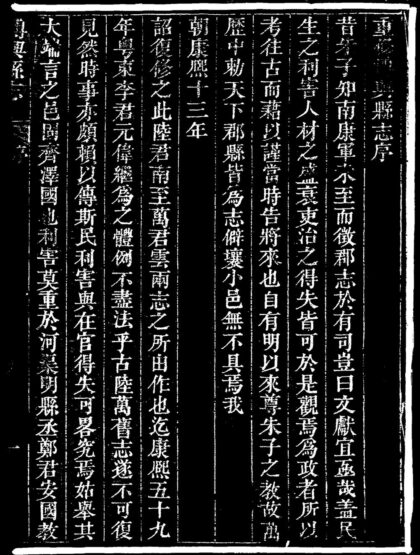 重修博興縣志序
昔朱子知南康軍未至而徵郡志於有司豈曰文獻宜亟哉蓋民
生之利害人材之盛衰吏治之得失皆可於是觀焉為政者所以
考往古而藉以謹當時告將來也自有明以來尊朱子之教故萬
歷中勅天下郡縣皆為志僻壤小邑無不具焉我
朝康熙十三年
詔復修之此陸君南至萬君雲兩志之所由作也迄康熙五十九
年粵東李君元偉繼為之體例不盡法乎古陸萬舊志遂不可復
見然時事亦頗賴以傳斯民利害與在官得失可畧究焉姑舉其
大端言之邑固齊澤國也利害莫重於河渠明縣丞鄭君安國教
博興縣志 序 一